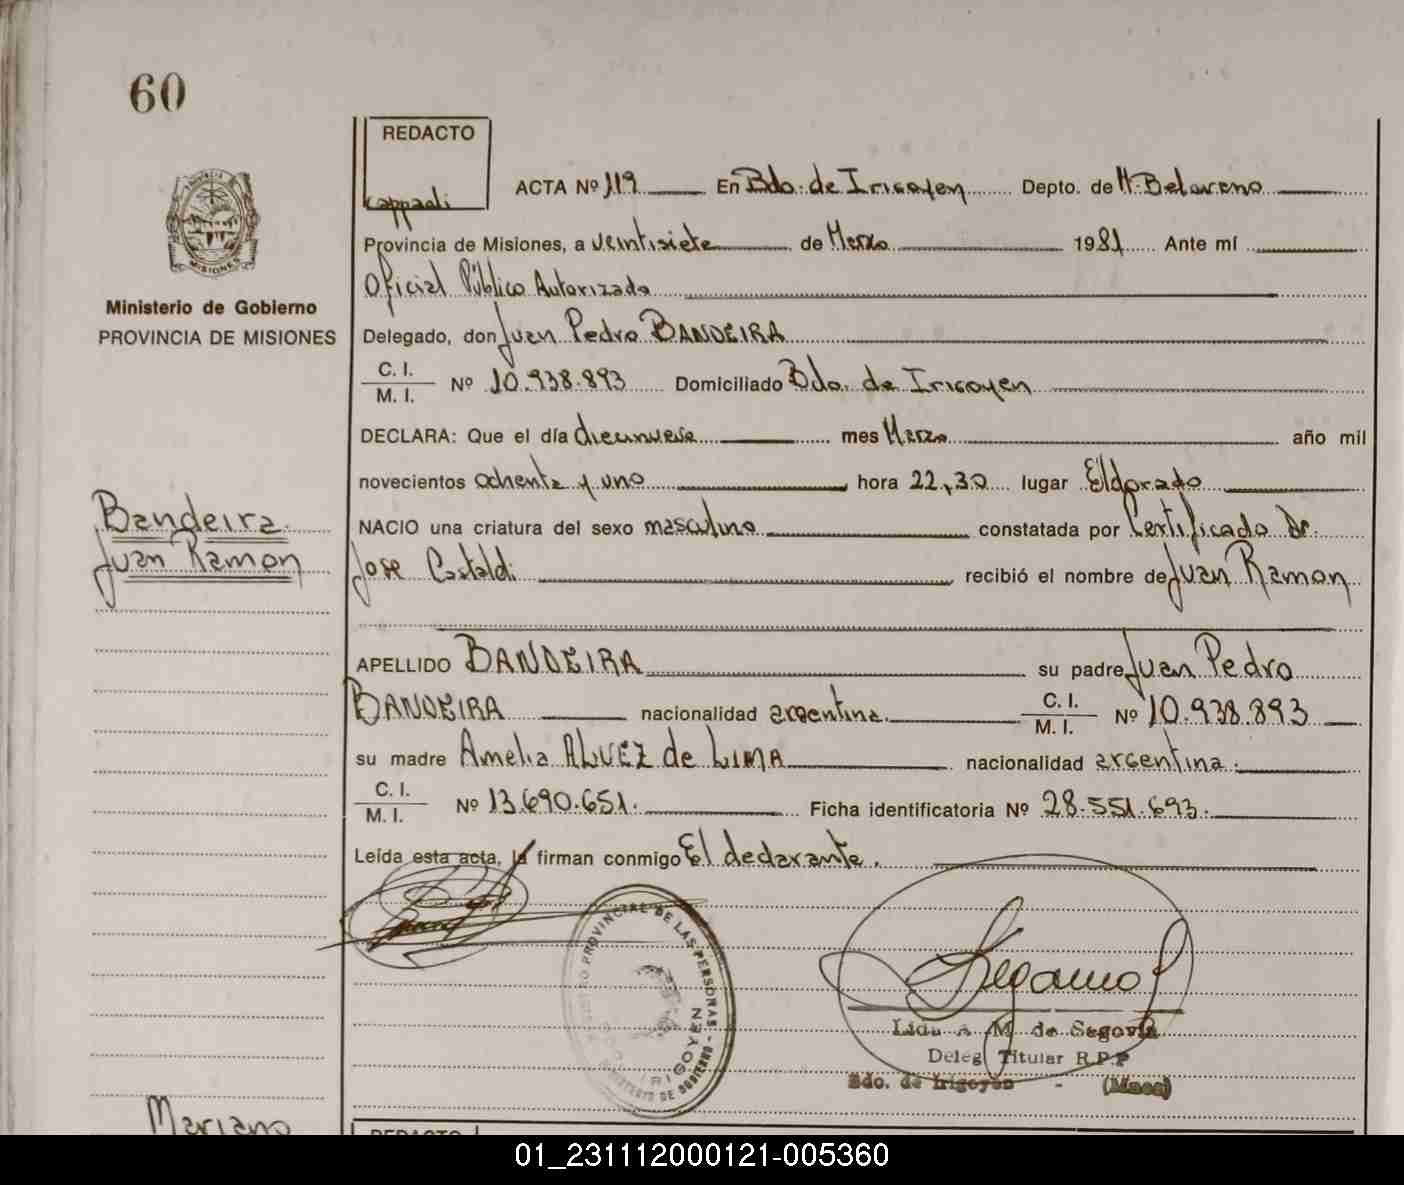 60
REDACTO
cappadi
ACTA Nº 119 En Bdo. de Irigoyen Depto. de M. Belgrano
Provincia de Misiones, a veintisiete de Marzo 1981 Ante mí
Oficial Público Autorizado
Delegado, don Juan Pedro BANDEIRA
C. I.
M. I.
Nº 10.938.893 Domiciliado Bdo. de Irigoyen
DECLARA: Que el día diecinueve mes Marzo año mil
novecientos ochenta y uno hora 22,30 lugar Eldorado
NACIO una criatura del sexo masculino constatada por Certificado Dr.
Jose Castaldi recibió el nombre de Juan Ramon
APELLIDO BANDEIRA su padre Juan Pedro
BANDEIRA nacionalidad argentina. C. I.
M. I.
Nº 10.938.893
su madre Amelia ALVEZ de LIMA nacionalidad argentina.
C. I.
M. I.
Nº 13.690.651. Ficha identificatoria Nº 28.551.693.
Leída esta acta, la firman conmigo El declarante.
PROVINCIA
MISIONES
Ministerio de Gobierno
PROVINCIA DE MISIONES
Bandeira
Juan Ramon
REGISTRO PROVINCIAL DE LAS PERSONAS - MINISTERIO DE GOBIERNO
IRIGOYEN
Segovia
Lidia A M. de Segovia
Deleg Titular R.P.P
Bdo. de Irigoyen - (Mnes)
Mariano
REDACTO
01_231112000121-005360